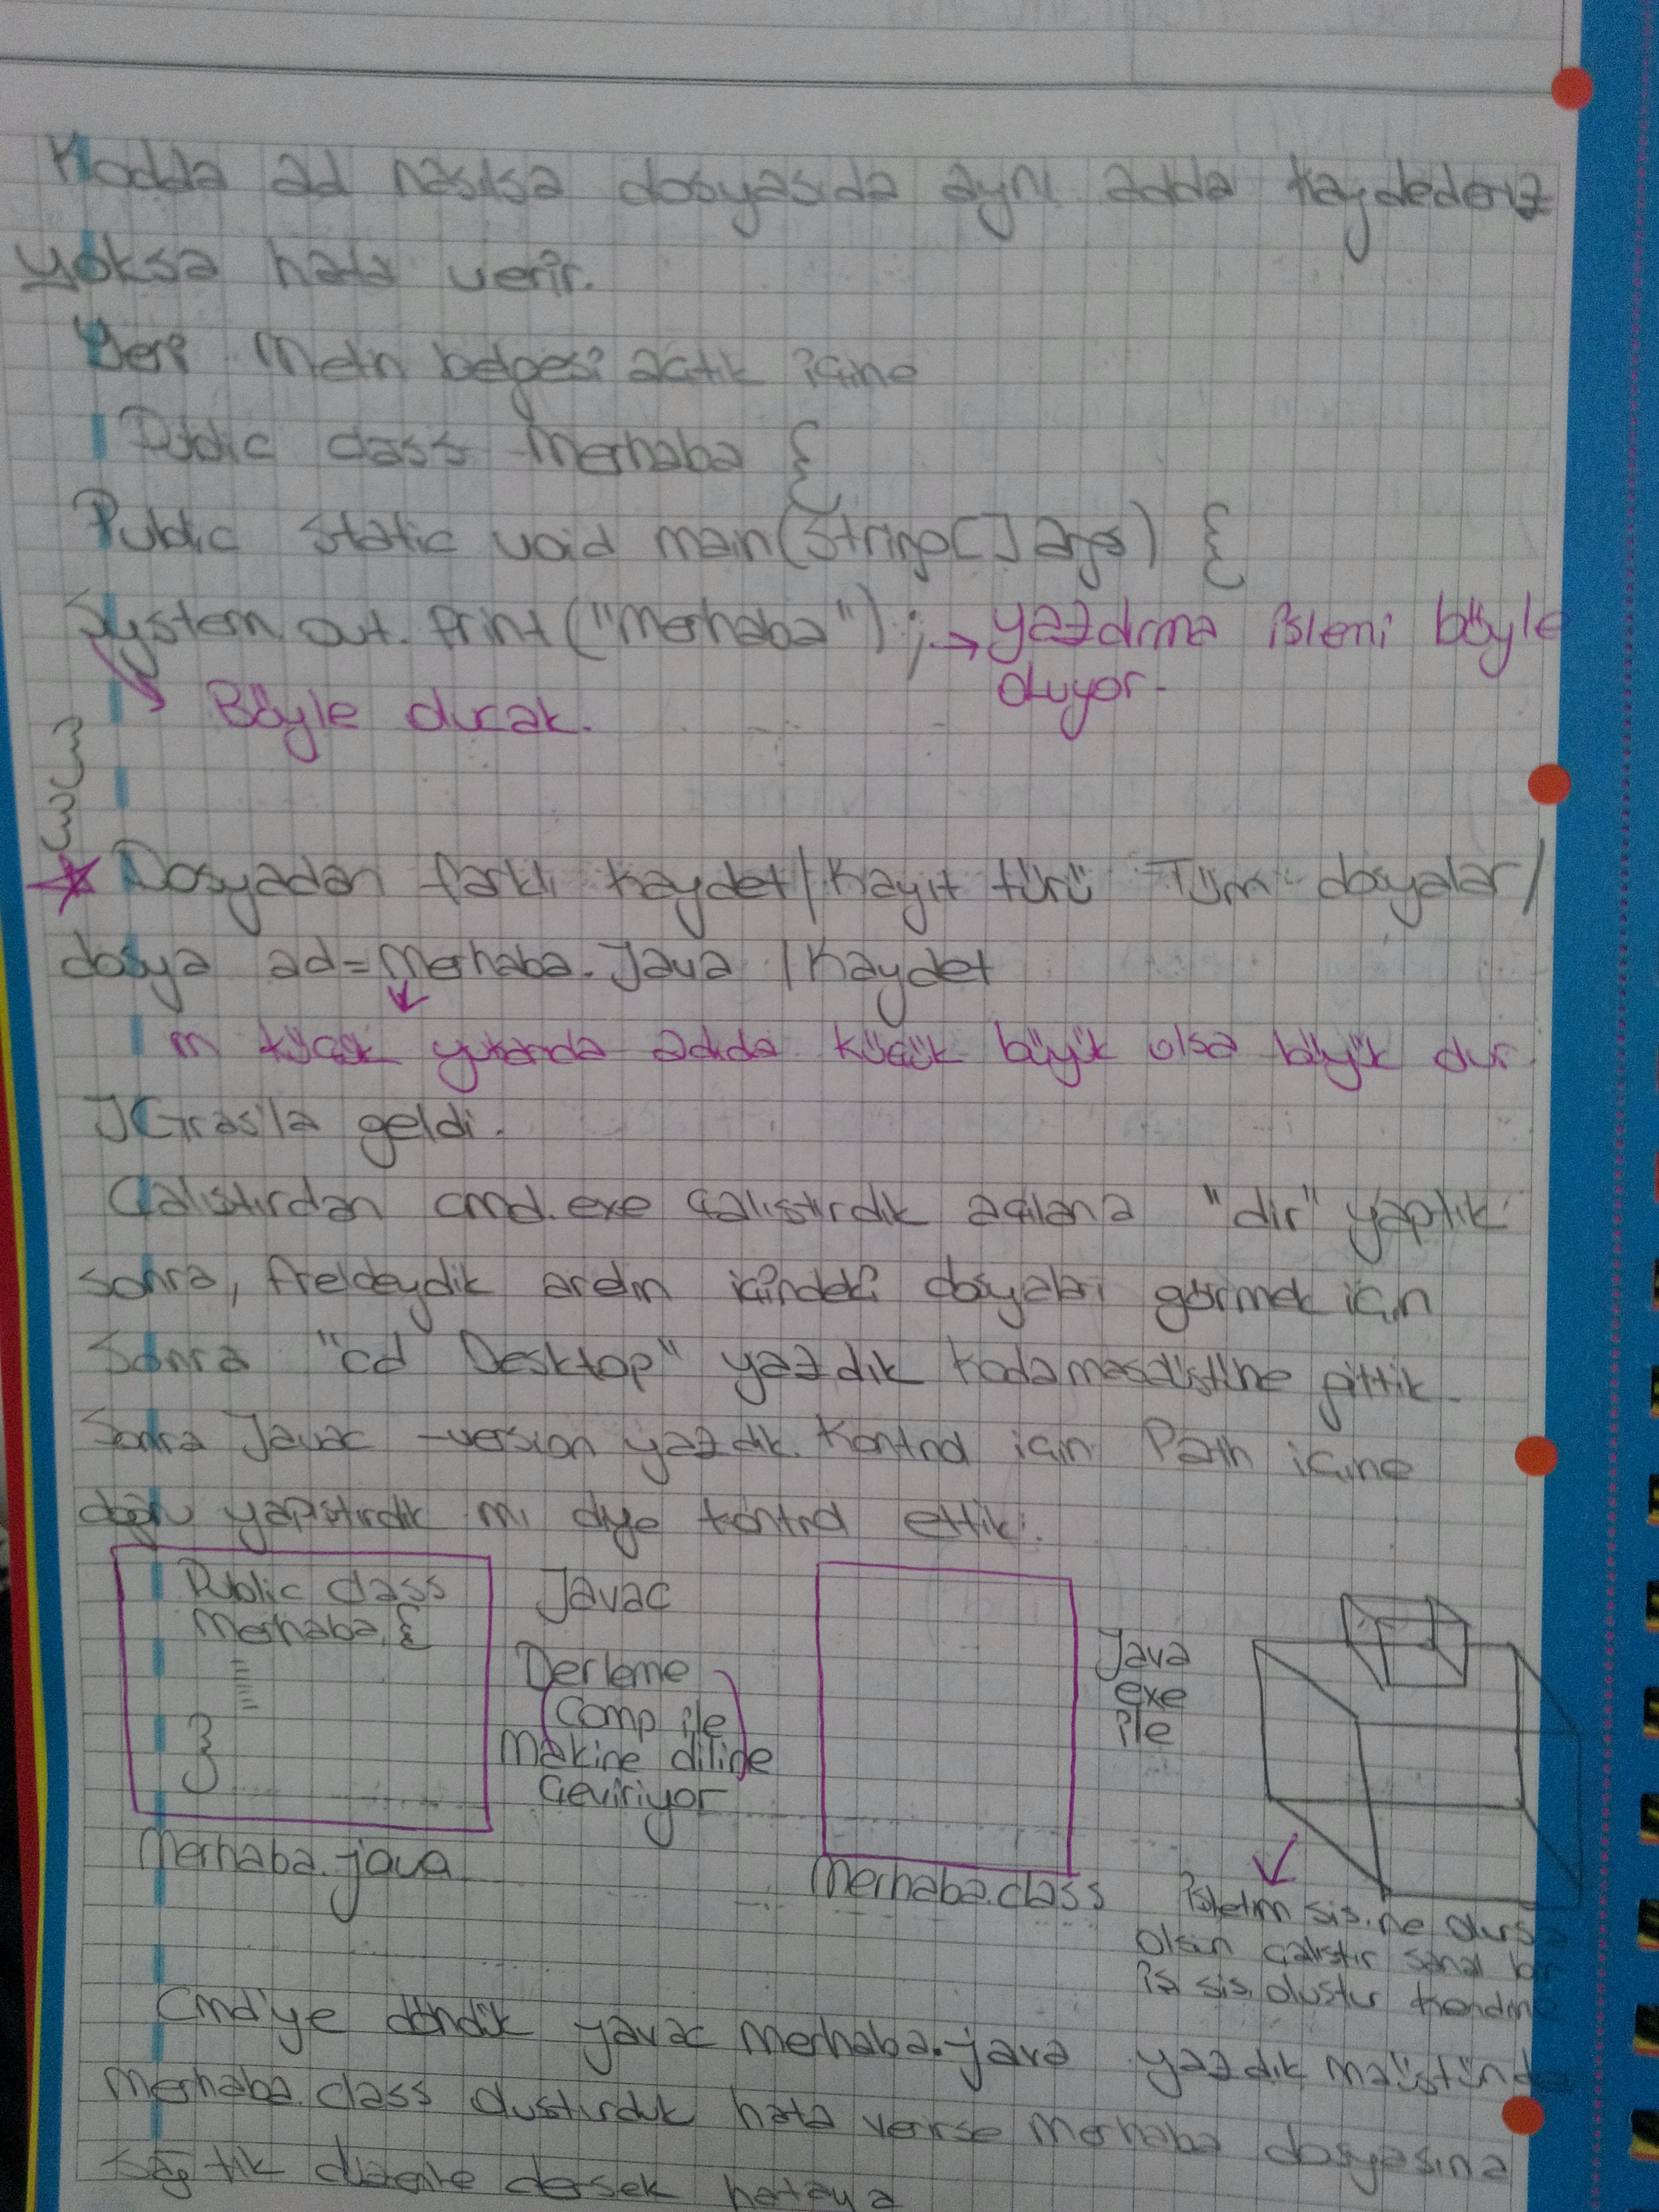 Kodda ad nasılsa dosyasıda aynı adda kaydederiz
yoksa hata verir.
Yeni Metin belgesi açtık içine
Public class Merhaba {
Public static void main(String[] args) {
System.out.print("Merhaba"); → yazdırma işlemi böyle
oluyor.
Böyle durcak.
}
}
Dosyadan farklı kaydet/Kayıt türü Tüm dosyalar/
dosya ad=Merhaba.Java /Kaydet
m küçük yukarıda adıda küçük büyük olsa büyük dur
JGrasla geldi.
Çalıştırdan cmd.exe çalıştırdık açılana "dir" yaptık
sonra, içindeki dosyaları görmek için
Sonra "cd Desktop" yazdık kodamasaüstüne gittik.
Sonra Javac -version yazdık. Kontrol için Path içine
doğru yapıştırdık mı diye kontrol ettik.
Public class
Merhaba {
}
Merhaba.java
Javac
Derleme
(Compile)
Makine diline
Çeviriyor
Merhaba.class
Java
exe
ile
İşletim sis. ne olursa
olsun çalıştır sanal bir
iş sis. oluştur kendine
Cmd'ye döndük javac Merhaba.java yazdık maüstünde
Merhaba.class oluşturduk hata verirse Merhaba dosyasına
sağ tık düzenle dersek hataya